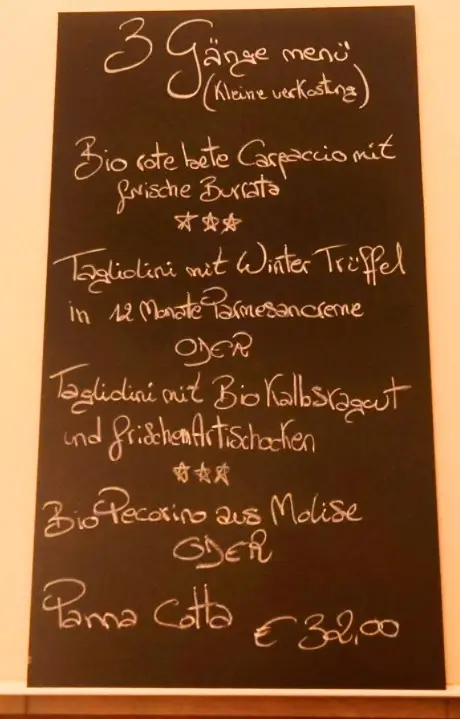 3 Gänge menü
(Kleine verkostng)
Bio rote bete Carpaccio mit
frische Burrata
☆☆☆
Tagliolini mit Winter Trüffel
in 12 Monate Parmesancreme
ODER
Tagliolini mit Bio Kalbsragout
und frischen Artischocken
☆☆☆
Bio Pecorino aus Molise
ODER
Panna Cotta € 32,00